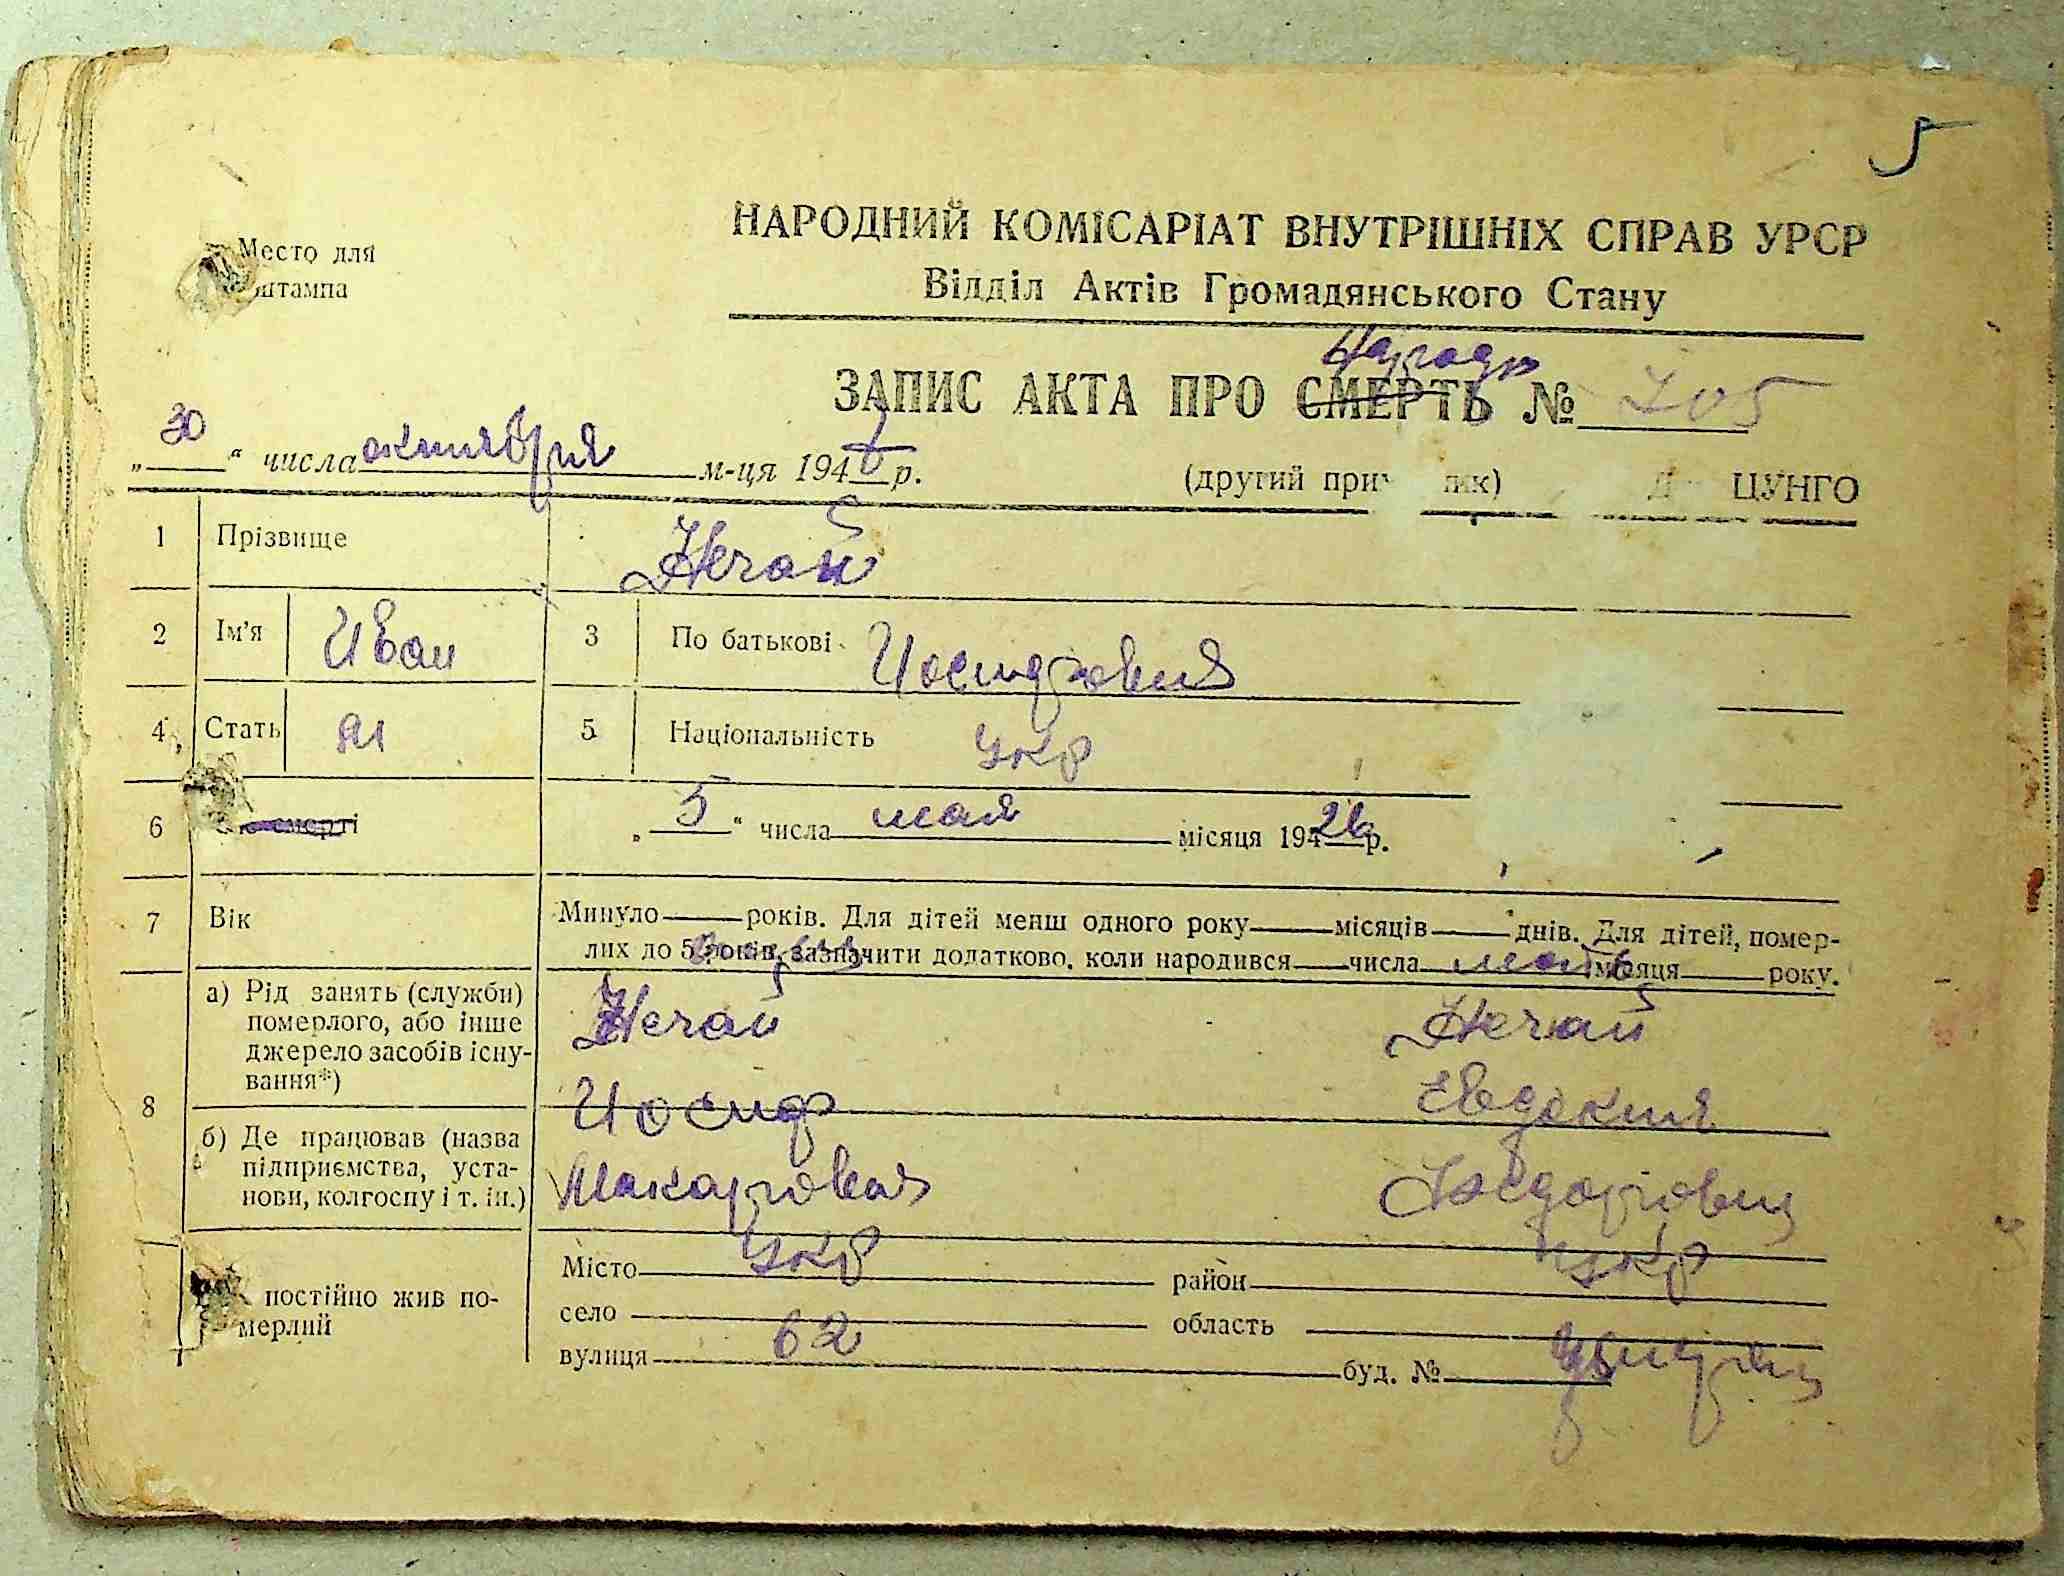 5
Место для
штампа
НАРОДНИЙ КОМІСАРІАТ ВНУТРІШНІХ СПРАВ УРСР
Відділ Актів Громадянського Стану
ЗАПИС АКТА ПРО СМЕРТЬ № 705
„30“ числа октября м-ця 194 р.
(другий ЦУНГО
1 Прізвище Нечай
2 Ім'я Иван 3 По батькові Иосифович
4 Стать м 5 Національність укр
6 смерті „5“ числа мая місяця 1926 р.
7 Вік Минуло року років. Для дітей менш одного року місяців днів. Для дітей, помер-
лих до 5 років, зазначити додатково, коли народився числа мать місяця року.
8 а) Рід занять (служби)
померлого, або інше
джерело засобів існу-
вання*)
Нечай Нечай
Иосиф Евдокия
б) Де працював (назва
підприємства, уста-
нови, колгоспу і т. ін.)
Макарович
постійно жив по-
мерлий
Місто укр район укр
село область
вулиця 62 буд. №